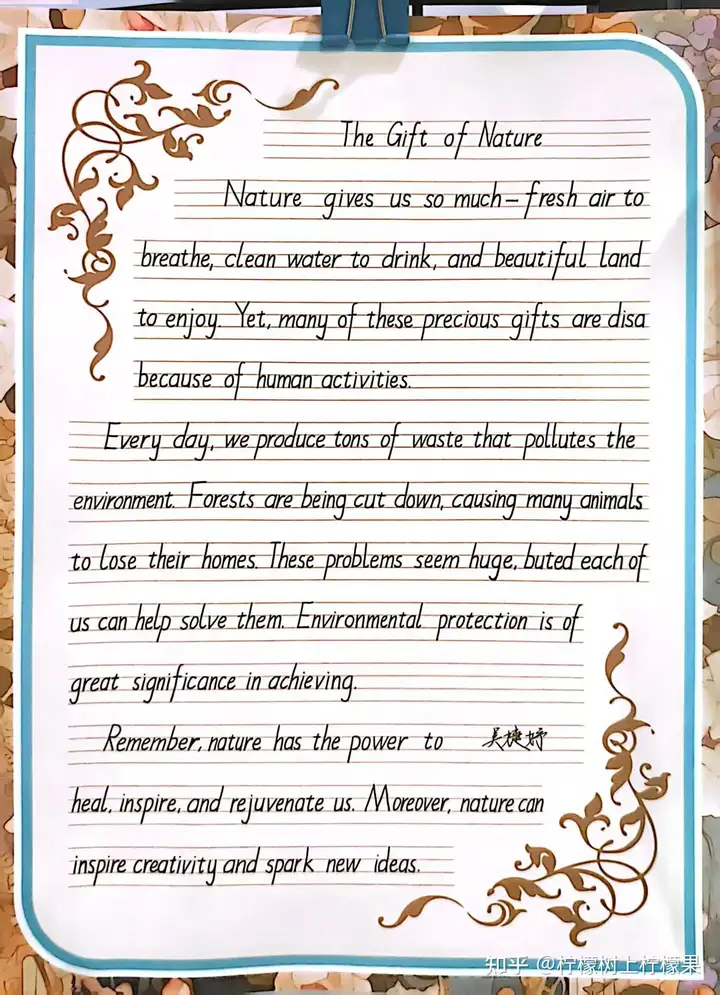 The Gift of Nature
Nature gives us so much-fresh air to
breathe, clean water to drink, and beautiful land
to enjoy. Yet, many of these precious gifts are disa
because of human activities.
Every day, we produce tons of waste that pollutes the
environment. Forests are being cut down, causing many animals
to lose their homes. These problems seem huge, buted each of
us can help solve them. Environmental protection is of
great significance in achieving.
Remember, nature has the power to 吴婕妤
heal, inspire, and rejuvenate us. Moreover, nature can
inspire creativity and spark new ideas.
知乎 @柠檬树上柠檬果